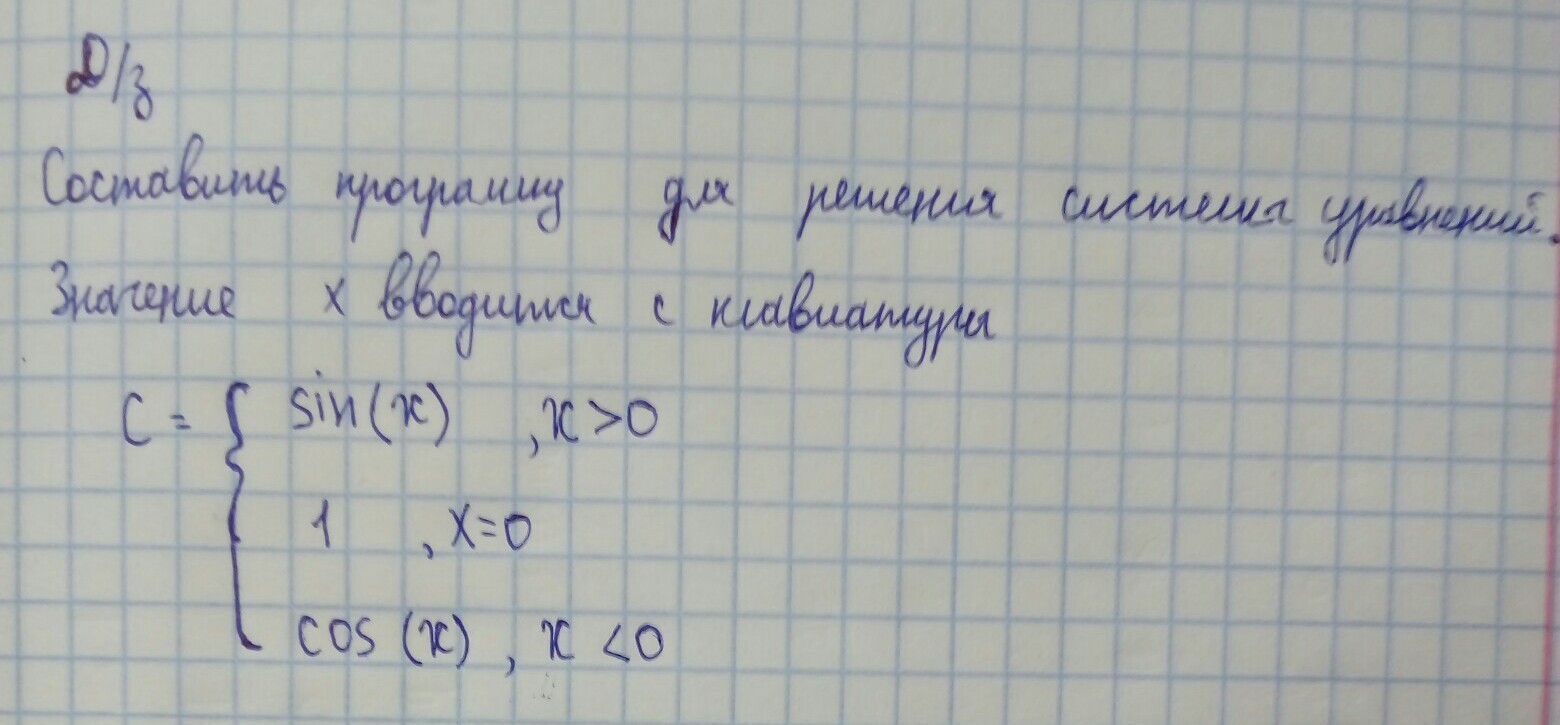 Д/з
Составить программу для решения системы уравнений.
Значение x вводится с клавиатуры
C = { sin(x) , x > 0
1 , x = 0
cos (x) , x < 0